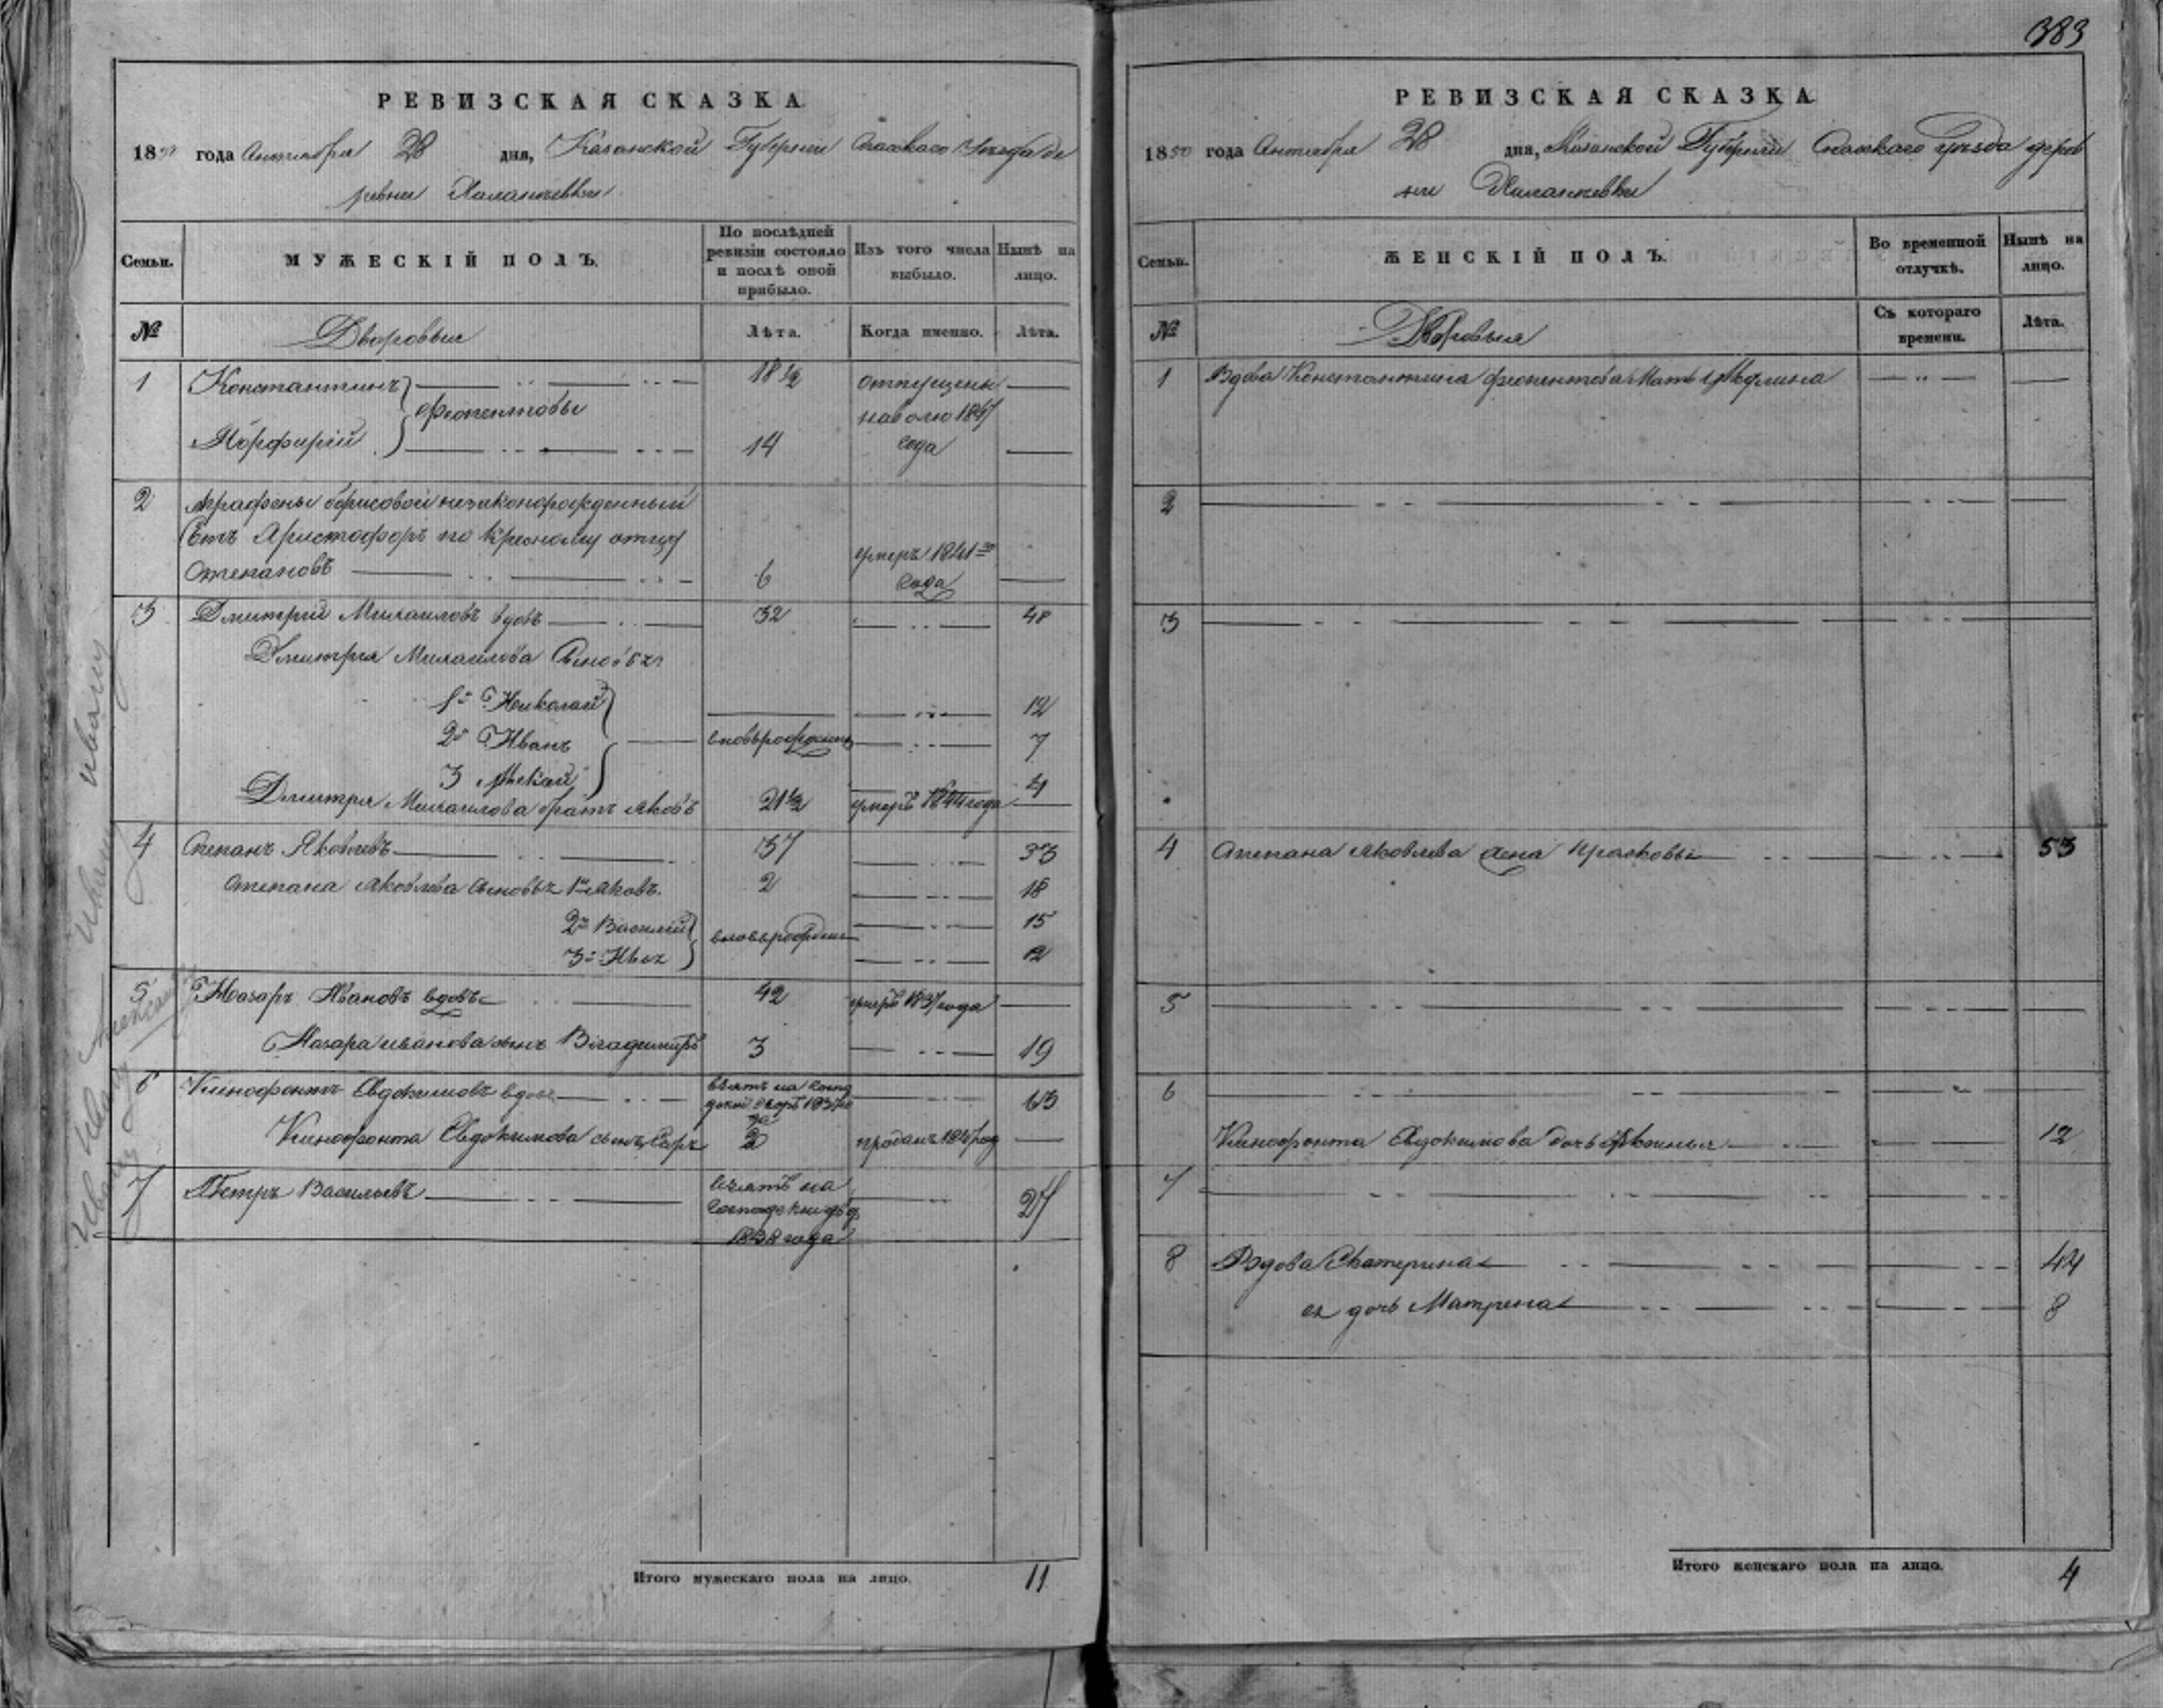 383
РЕВИЗСКАЯ СКАЗКА
1850 года Октября 28 дня, Казанской Губернии Спасскаго Уезда де
ревни
Семьи.
МУЖЕСКІЙ ПОЛЪ.
По послѣдней ревизіи состояло и послѣ оной прибыло.
Изъ того числа выбыло.
Нынѣ на лицо.
№
Дворовыя
Лѣта.
Когда именно.
Лѣта.
1 Константинъ 18 1/2 отпущены
наволю 1847
Порфирій 14 года
2 Аграфены борисовой незаконорожденный
Сынъ по Кресному отцу
Степановъ 6 умеръ 1841го
года
3 Дмитрій Михаиловъ вдовъ 32 48
Дмитрія Михаилова Сыновья
1й Николай 12
2й Иванъ вновьрожденны 7
3 Алекѣй 4
Дмитрія Михаилова братъ Яковъ 21 1/2 умеръ 1844 года
4 Степанъ Яковлевъ 37 53
Степана Яковлева Сыновья 1й Яковъ 2 18
2й Василій 15
вновьрожден
3й Илья 12
5 Назаръ Ивановъ вдовъ 42 умеръ 1837 года
Назара иванова сынъ Владимиръ 3 19
6 Ксенофонтъ Евдокимовъ вдовъ взятъ на госпо
дский дворъ 1837 го
да 63
Ксенофонта Евдокимова сынъ 2 проданъ 1847 год
7 Петръ Васильевъ взятъ на
Господский дв
1838 года 27
Итого мужескаго пола на лицо. 11
РЕВИЗСКАЯ СКАЗКА
1850 года Октября 28 дня, Казанской Губернии Спаскаго уезда дерев
ни
Семьи.
ЖЕНСКІЙ ПОЛЪ.
Во временной отлучкѣ.
Нынѣ на лицо.
№
Дворовыя
Съ котораго времени.
Лѣта.
1 Вдова Константина Мать
2
3
4 Степана Яковлева жена Прасковья 53
5
6
Ксенофонта Евдокимова дочь 12
7
8 Вдова Екатерина 44
ея дочь Матрена 8
Итого женскаго пола на лицо. 4